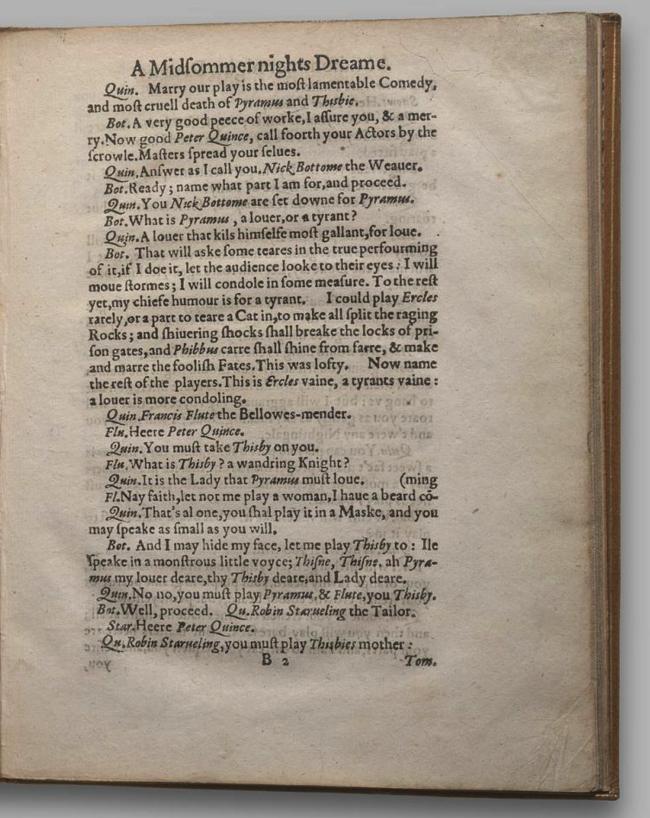 A Midſommer nights Dreame.
Quin. Marry our play is the moſt lamentable Comedy,
and moſt cruell death of Pyramus and Thisbie.
Bot. A very good peece of worke, I aſſure you, & a mer-
ry. Now good Peter Quince, call foorth your Actors by the
ſcrowle. Maſters ſpread your ſelues.
Quin. Anſwer as I call you. Nick Bottome the Weauer.
Bot. Ready; name what part I am for, and proceed.
Quin. You Nick Bottome are ſet downe for Pyramus.
Bot. What is Pyramus, a louer, or a tyrant?
Quin. A louer that kils himſelfe moſt gallant, for loue.
Bot. That will aske ſome teares in the true perfourming
of it, if I doe it, let the audience looke to their eyes: I will
moue ſtormes; I will condole in ſome meaſure. To the reſt
yet, my chiefe humour is for a tyrant. I could play Ercles
rarely, or a part to teare a Cat in, to make all ſplit the raging
Rocks; and ſhiuering ſhocks ſhall breake the locks of pri-
ſon gates, and Phibbus carre ſhall ſhine from farre, & make
and marre the fooliſh Fates. This was lofty. Now name
the reſt of the players. This is Ercles vaine, a tyrants vaine:
a louer is more condoling.
Quin. Francis Flute the Bellowes-mender.
Flu. Heere Peter Quince.
Quin. You muſt take Thisby on you.
Flu. What is Thisby? a wandring Knight?
Quin. It is the Lady that Pyramus muſt loue. (ming
Fl. Nay faith, let not me play a woman, I haue a beard cō-
Quin. That's al one, you ſhal play it in a Maske, and you
may ſpeake as ſmall as you will.
Bot. And I may hide my face, let me play Thisby to: Ile
ſpeake in a monſtrous little voyce; Thiſne, Thiſne, ah Pyra-
mus my louer deare, thy Thisby deare, and Lady deare.
Quin. No no, you muſt play Pyramus, & Flute, you Thisby.
Bot. Well, proceed. Qu. Robin Starueling the Tailor.
Star. Heere Peter Quince.
Qu. Robin Starueling, you muſt play Thisbies mother:
B 2 Tom.